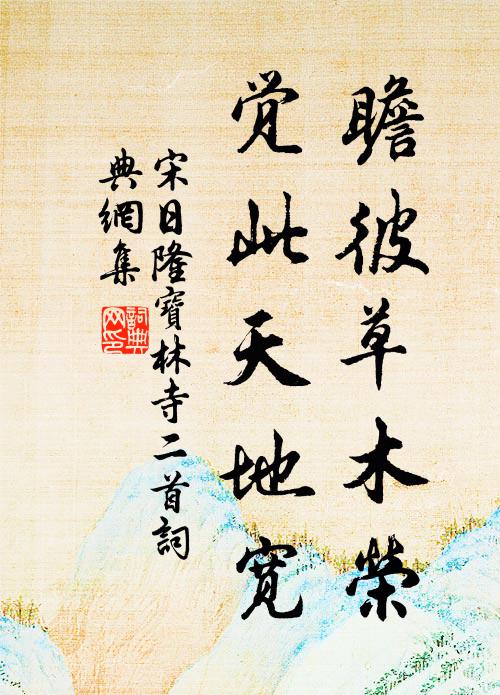 瞻彼草木榮
觉此天地寛
宋日隆寶林寺二首詞
典網集
詞典
网印